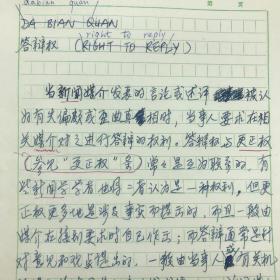 dabian quan
DA BIAN QUAN right to reply
答辩权 (RIGHT TO REPLY)
当新闻媒介发表的言论或述评被认
为有关偏颇或歪曲真相时,当事人要求在相
关媒介对之进行答辩的权利。答辩权与更正权
(参见“更正权”条)常常是互为联系的,有
些新闻学学者也将二者认为是一种权利,但更
正权更多地是涉及事实而提出的,而且一般由
媒介在接到要求时自己作出;而答辩通常是针
对意见和观点提出的,一般由当事人或有关机